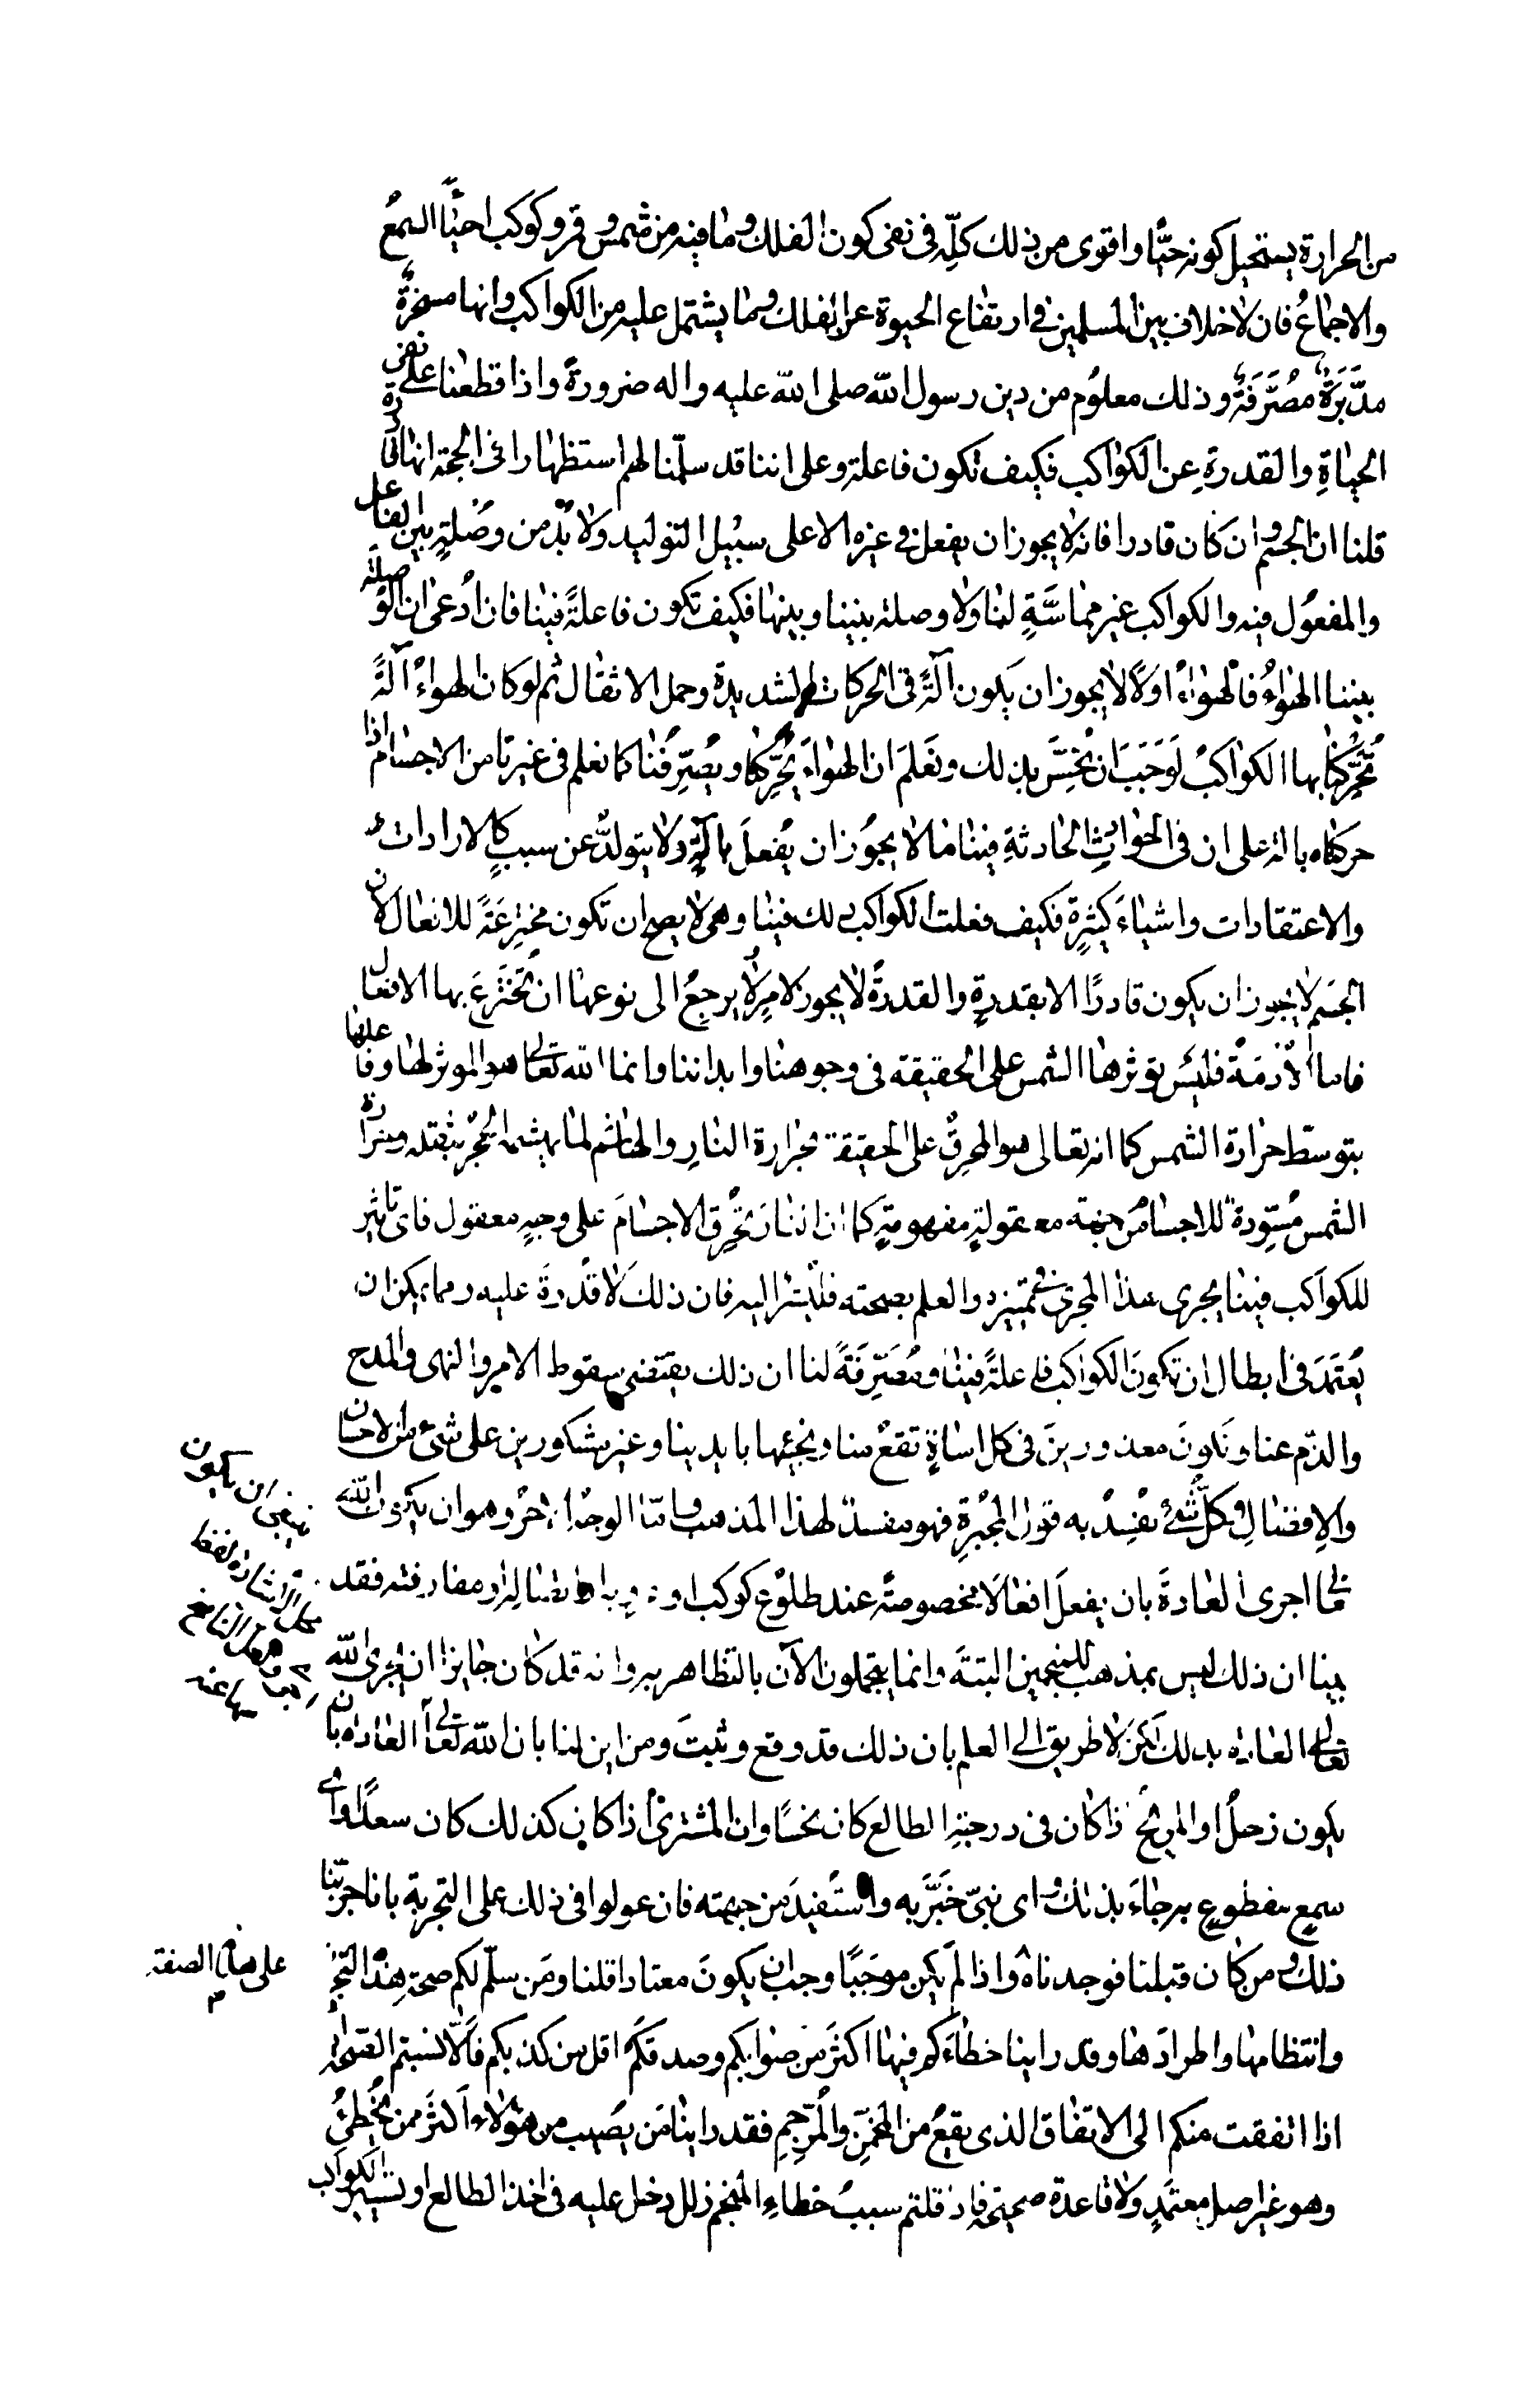 من الحرارة يستحيل كونه حيّا واقوى من ذلك كلّه فى نفى كون الفلك وما فيه من شمس وقمر وكوكب احياءً السمع
والاجماعُ فان لا خلاف بين المسلمين فى ارتفاع الحيوة عن الفلك وما يشتمل عليه من الكواكب وانها مسخرةٌ
مدَّبَرَةٌ مصَّرَفَةٌ وذلك معلوُم من دين رسول اللّه صلى اللّه عليه واله ضرورةً واذا قطعنا على نفى
الحياةِ والقدرةِ عن الكواكب فكيف تكون فاعلة وعلى اننا قد سلّمنا لهم استظهارا فى الحجة انها قادرة
قلنا ان الجسم وان كان قادرا فانه لا يجوز ان يفعل فى غيره الا على سبيل التوليد ولا بُدّ من وصُلةٍ بين الفاعل
والمفعُول فيه والكواكب غير مماسَّةٍ لنا ولا وصلة بيننا وبينها فكيف تكون فاعلةً فينا فان ادُعى ان الوصلة
بيننا الهواءُ فالهواءُ اولًا لا يجوز ان يكون آلةً فى الحركات الشديدة وحمل الاثقال ثم لو كان الهواءُ آلةً
تُحَرِّكنا بها الكواكبُ لَوَجَبَ ان نُحِسَّ بذلك ونَعلمَ ان الهواءَ يُحَرِّكنا ويُصَرِّفُنا كما نعلم فى غيرنا من الاجسام اذا
حركناه بالة على ان فى الحوادثِ الحادثةِ فينا ما لا يجوُز ان يُفعلَ بآلةٍ ولا يتولدُ عن سببٍ كالارادات
والاعتقادات واشياءَ كثيرةٍ فكيف فعلت الكواكب ذلك فينا وهى لا يصح ان تكون مخترِعَةً للافعال لان
الجسم لا يجوز ان يكون قادرًا الا بقدرةٍ والقدرةُ لا يجوز لامرٍ يرجعُ الى نوعها ان تُختَرعَ بها الافعال
فاما الأدمَةُ فليَس تؤثرها الشمس على الحقيقة فى وجوهنا وابداننا وانما اللّه تعالى هو المؤثر لها وفاعلها
بتوسّط حرارة الشمس كما انه تعالى هو المحرقُ على الحقيقة بحرارة النارِ والهاشم لما يهشمه الحجُر بثقله وحرارة
الشمس مُسَوِّدةٌ للاجسام من جهة معقولةٍ مفهومةٍ كما ان النارَ تُحرِق الاجسامَ على وجهٍ معقول فاى تاثير
للكواكب فينا يجرى هذا المجرى فى تمييزه والعلم بصحته فليُشَر اليه فان ذلك لا قُدرةَ عليه ومما يمكن ان
يُعتَمَدَ فى ابطال ان تكونَ الكواكب فاعلةً فينا ومُصَرِّفَةً لنا ان ذلك يقتضى سقوط الامر والنهى والمدح
والذّم عنا ونَكونَ معذورينَ فى كل اساءةٍ تقعُ منا ونجنيها بايدينا وغير مشكورين على شئ من الاحسان
والافضالِ وكلُّ شئٍ نفسِدُ به قول المجُبرةِ فهو مفسدٌ لهذا المذهب واما الوجهُ الاخرُ وهو ان يكون اللّه
تعالى اجرى العادةَ بان يفعلَ افعالًا مخصوصةً عند طلوُع كوكب او غروبه او اتصاله او مفارقته فقد
بينا ان ذلك ليس بمذهب للمنجمين البتةَ وانما يتجملون الآن بالتظاهر به وانه قد كان جايزا ان يُجرى اللّه
تعالى العادة بذلك لكن لا طريق الى العلم بان ذلك قد وقع وثبتَ ومن اين لنا بان اللّه تعالى العادة بان
يكون زحلُ او المريخُ اذا كان فى درجةِ الطالع كان نحسًا وان المشترىُ اذا كان كذلك كان سعدًا واى
سمعٍ مقطوعٍ به جاءَ بذلك واى نبىّ خَبَّرَ به واستُفيدَ من جهته فان عولوا فى ذلك على التجربة بانا جربّنا
ذلك ومن كان قبلنا فوجدناهُ واذا لم يكن موجَبًا وجب ان يكونَ معتادا قلنا ومَن سلّم لكم صحةِ هذه التجربة
وانتظامها واطرادَها وقد راينا خطاءَكم فيها اكثَر من صوابكم وصدقكم اقل من كذبكم فألّا نسبتم الصحة
اذا اتفقت منكم الى الاتفاق الذى يقعُ من المخَمِّنِ والمُرَجِمِ فقد راينا مَن يصُيب من هؤلاء اكثَر ممن يُخطئُ
وهو غير اصل معتَمدٍ ولا قاعدة صحيحة فان قلتم سببُ خطاءِ المنجم زلل دخل عليه فى اخذ الطالع او تسيير الكواكب
ينبغى ان يكون
على هذه الصفة